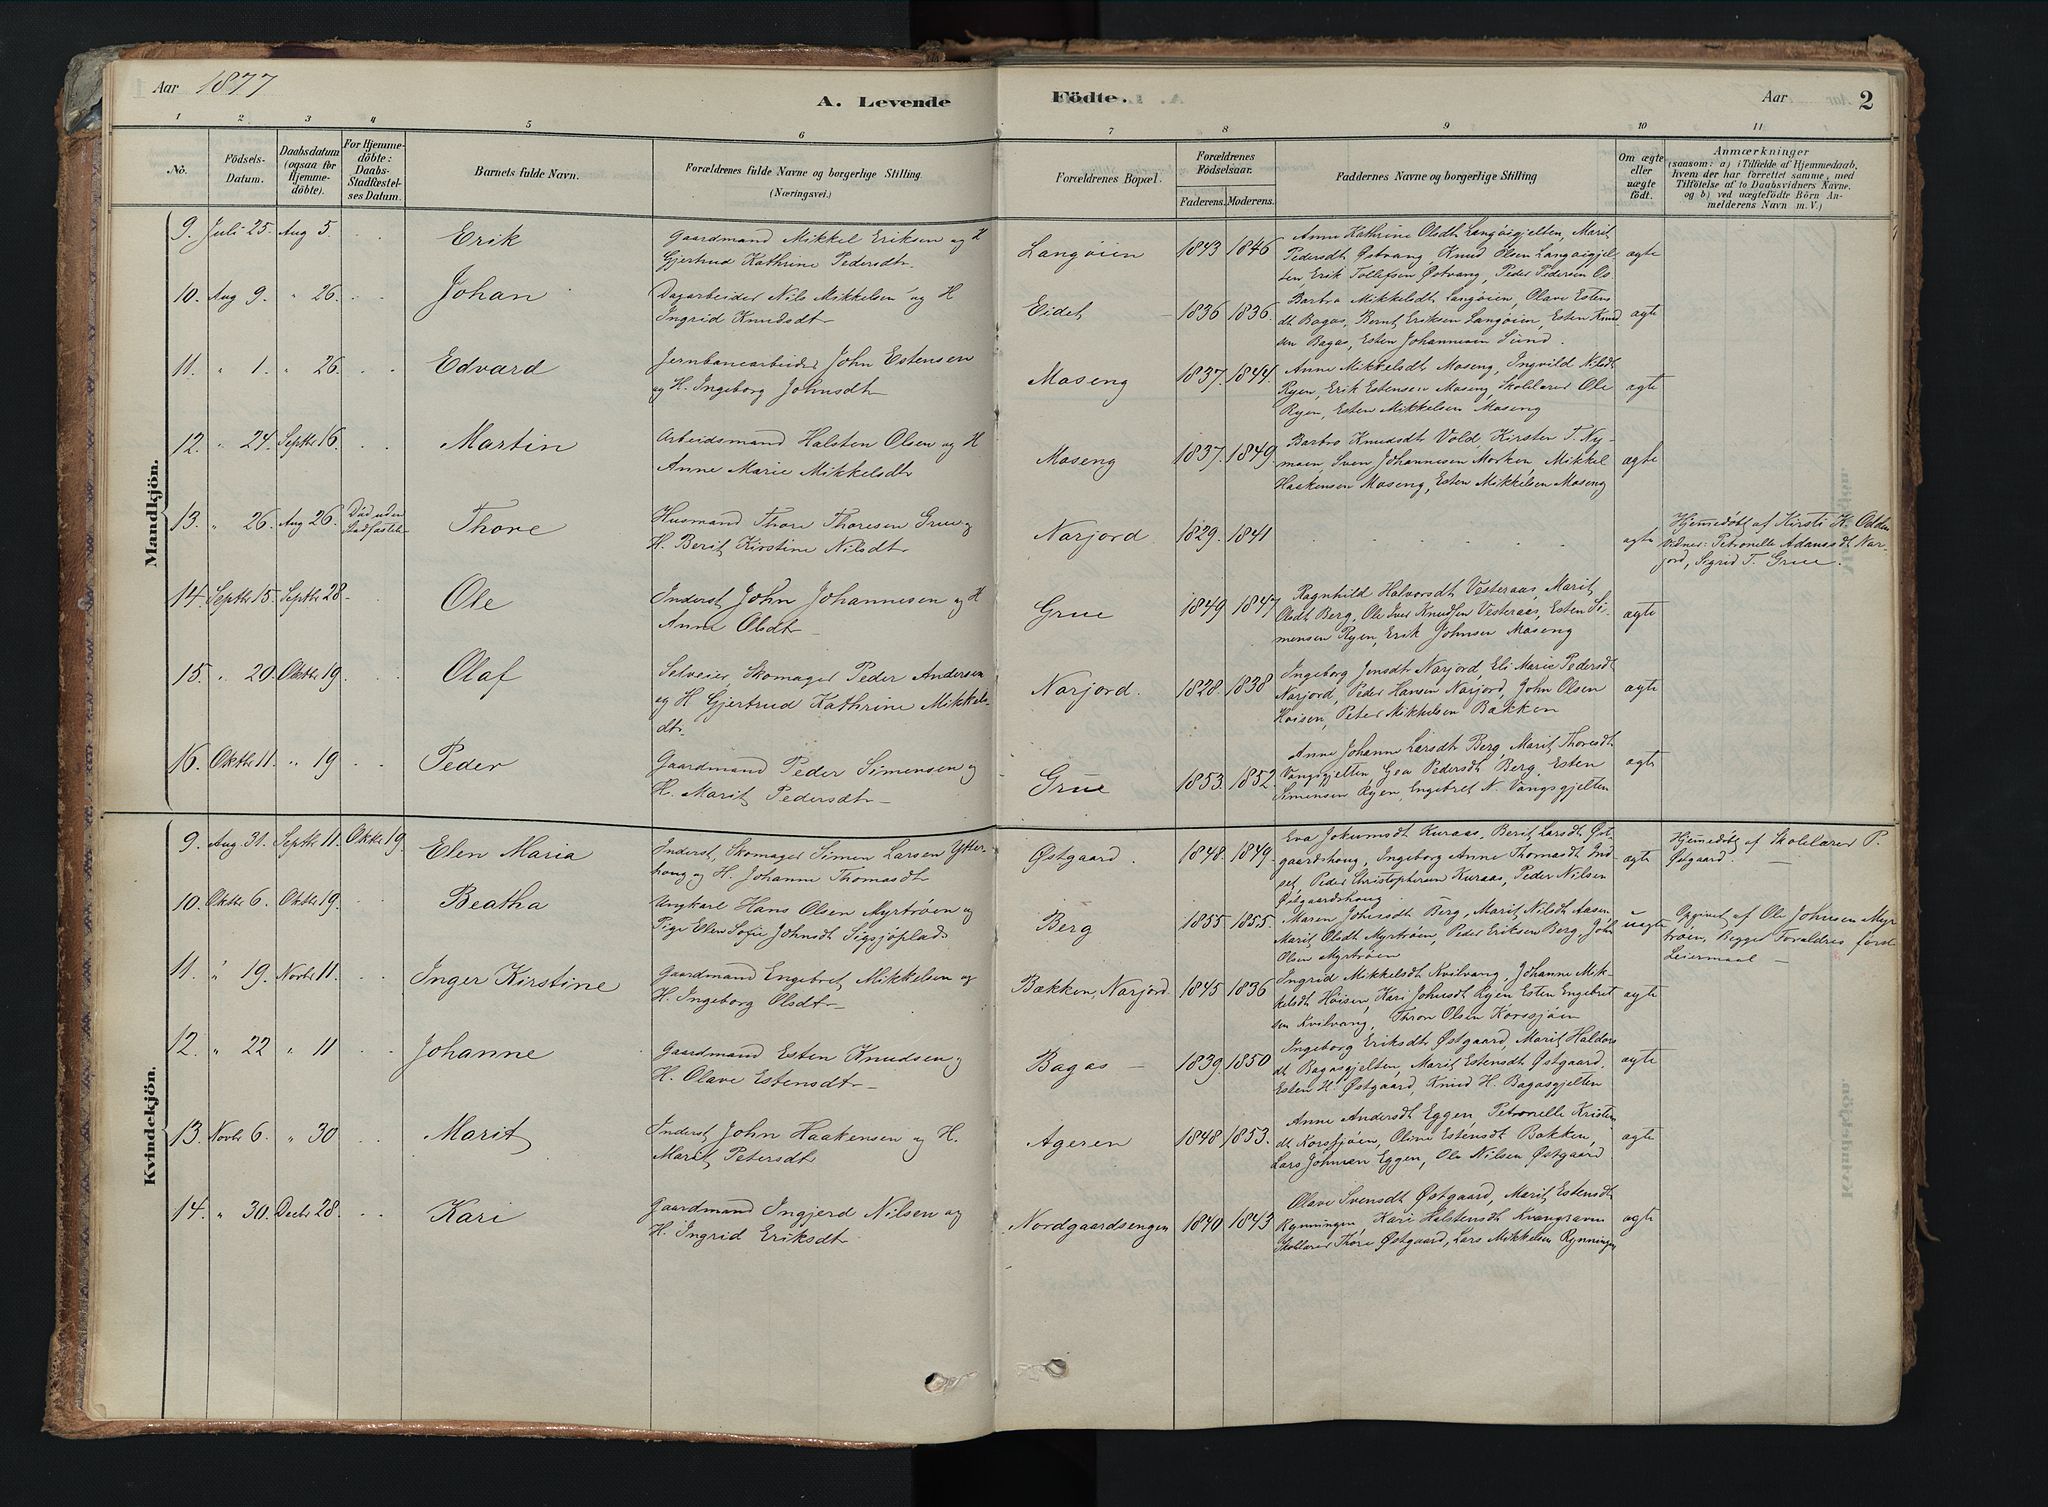 Aar 1877
A. Levende Födte.
Aar 2
1 2 3 4 5 6 7 8 9 10 11
No.
Födsels-Datum.
Daabsdatum (ogsaa for Hjemmedöbte).
For Hjemmedöbte: Daabs-Stadfæstelses Datum.
Barnets fulde Navn.
Forældrenes fulde Navne og borgerlige Stilling. (Næringsvei.)
Forældrenes Bopæl.
Forældrenes Födselsaar.
Faderens. Moderens.
Faddernes Navne og borgerlige Stilling
Om ægte eller uægte födt.
Anmærkninger
(saasom: a) i Tilfælde af Hjemmedaab, hvem der har forrettet samme, med Tilföielse af to Daabsvidners Navne, og b) ved uægtefödte Börn Anmelderens Navn m. V.)
Mandkjön.
9. Juli 25. Aug 5. Erik
Gaardmand Mikkel Eriksen og H
Gjertrud Kathrine Pedersdtr
Langøien 1843 1846
Anne Kathrine Olsdt Langøigjelten, Marit
Pedersdt Østvang, Knud Olsen Langøigjel-
ten, Erik Tollefsen Østvang, Peder Pedersen Os.
ægte
10. Aug 9. " 26. Johan
Dagarbeider Nils Mikkelsen og H
Ingrid Knudsdtr
Eidet 1836 1836.
Barbro Mikkelsdt Langøien, Olave Estens
dt Bagas, Bernt Eriksen Langøien, Esten Knud
sen Bagas, Esten Johannesen Sund.
ægte
11. " 1. " 26. Edvard
Jernbanearbeider John Estensen
og H. Ingeborg Johnsdtr
Moseng 1837. 1844.
Anne Mikkelsdt Moseng, Ingvild Nilsdt
Ryen, Erik Estensen Moseng, Skolelærer Ole
Ryen, Esten Mikkelsen Moseng
ægte
12. " 24. Septbr 16. Martin
Arbeidsmand Halsten Olsen og H
Anne Marie Mikkelsdtr
Moseng 1837. 1849.
Barbro Knudsdt Vold, Kirsten T. Ny-
moen, Sven Johannesen Morken, Mikkel
Haakensen Moseng, Esten Mikkelsen Moseng
ægte
13. " 26. Aug 26. Død uden Stadfæstelse Thore
Husmand Thore Thoresen Grue og
H. Berit Kirstine Nilsdtr
Narjord 1829. 1841
ægte
Hjemmedøbt af Kirsti K. Odden
Vidner: Petronelle Adamsdt Nar-
jord, Sigrid T. Grue.
14. Septbr 15. Septbr 28. Ole
Inderst John Johannesen og H
Anne Olsdtr
Grue 1849 1847
Ragnhild Halvorsdt Vesteraas, Marit
Olsdt Berg, Ole Iver Knudsen Vesteraas, Esten Si-
mensen Ryen, Erik Johnsen Moseng
ægte
15. " 20. Oktbr 19. Olaf
Selveier, Skomager Peder Andersen
og H Gjertrud Kathrine Mikkels-
dtr.
Narjord. 1828. 1838
Ingeborg Jensdt Narjord, Eli Marie Pedersdt
Narjord, Peder Hansen Narjord, John Olsen
Høisen, Peter Mikkelsen Bakken
ægte
16. Oktbr 11. " 19 Peder
Gaardmand Peder Simensen og
H. Marit Pedersdtr
Grue 1853. 1852.
Anne Johanne Larsdt Berg, Marit Thoresdt
Vangsgjelten, Gea Pedersdt Berg, Esten
Simensen Ryen, Engebret N. Vangsgjelten
ægte
Kvindekjön.
9. Aug 31. Septbr 11. Oktbr 19. Elen Maria
Inderst, Skomager Simen Larsen Ytter-
houg og H. Johanne Thomasdtr
Østgaard. 1848. 1849.
Eva Jokumsdt Kuraas, Berit Larsdt Øst-
gaardshoug, Ingeborg Anne Thomasdt Ind-
set, Peder Christophersen Kuraas, Peder Nilsen
Østgaardshoug
ægte
Hjemmedøbt af Skolelærer P.
Østgaard.
10. Oktbr 6. Oktbr 19. Beatha
Ungkarl Hans Olsen Myrtrøen og
Pige Elen Sofie Johnsdt Sigsjøplads
Berg 1855. 1855.
Maren Johnsdt Berg, Marit Nilsdt Aasen
Marit Olsdt Myrtrøen, Peder Eriksen Berg, John
Olsen Myrtrøen
uægte
Opgivet af Ole Johnsen Myr
trøen, Begges Forældres første
Leiermaal
11. " 19. Novbr 11. Inger Kirstine
Gaardmand Engebret Mikkelsen og
H. Ingeborg Olsdtr
Bækken, Narjord 1845 1836
Ingrid Mikkelsdt Kvilvang, Johanne Mik-
kelsdt Høisen, Kari Johnsdt Ryen Esten Engebret
sen Kvilvang, Thron Olsen Korssjøen
ægte
12. " 22 " 11 Johanne
Gaardmand Esten Knudsen og
H. Olave Estensdtr
Bagas 1839. 1850
Ingeborg Eriksdt Østgaard, Marit Haldors
dt Bagasgjelten, Marit Estensdt Østgaard,
Esten H. Østgaard, Knud H. Bagasgjelten
ægte
13. Novbr 6. " 30 Marit
Inderst John Haakensen og H.
Marit Petersdtr
Ageren 1848. 1853.
Anne Andersdt Eggen, Petronelle Kristen
dt Korssjøen, Oline Estensdt Bakken,
Lars Johnsen Eggen, Ole Nilsen Østgaard
ægte
14. " 30. Decbr 28. Kari
Gaardmand Ingjerd Nilsen og
H. Ingrid Eriksdtr
Nordgaardsengen 1840 1843
Olave Svensdt Østgaard, Marit Estensdt
Rynningen, Kari Halstensdt Kvangraven
Skolelærer Thore Østgaard, Lars Mikkelsen Rynningen
ægte